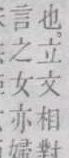 也。立文相對
言之女亦婦